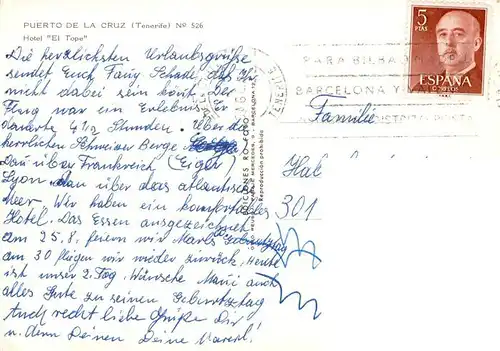 PUERTO DE LA CRUZ (Tenerife) Nº 526
Hotel "El Tope"
Die herzlichsten Urlaubsgrüße
sendet Euch Fanny Schade das Ihr
nicht dabei sein könt. Der
Flug war ein Erlebnis. Er
dauerte 4½ Stunden. Über die
herrlichen Schweizer Berge
dan über Frankreich (Eiger)
Lyon dan über das atlantische
Meer. Wir haben ein komfortables
Hotel. Das Essen ausgezeichnet
am 25.8. feiern wir Marls Geburtstag
am 30 fliegen wir wieder zurück. Heute
ist unser 2. Tag. Wünsche auch
alles Gute zu seinen Geburtztag
Auch recht liebe Grüße Dir
u. denn Deinen Deine
EDICIONES RO-FOTO
Reproducción prohibida
5
PTAS
ESPAÑA
CORREOS
PARA BILBAO
BARCELONA Y
DISTRITO POSTAL
Familie
301